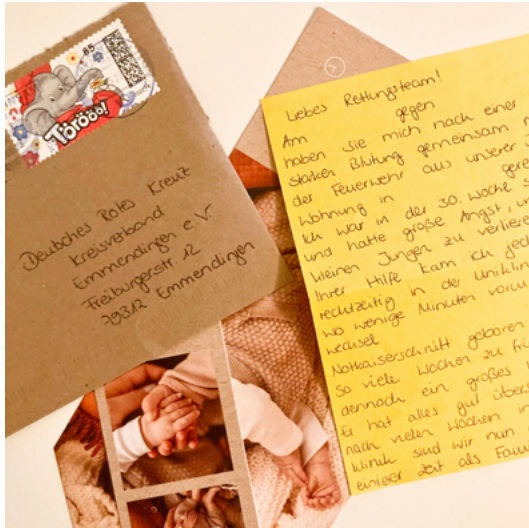 85
Törööö!
Deutsches Rotes Kreuz
Kreisverband
Emmendingen e.V.
Freiburgerstr. 12
79312 Emmendingen
Liebes Rettungsteam!
Am gegen
haben Sie mich nach einer
starken Blutung gemeinsam
der Feuerwehr aus unserer
Wohnung in
Ich war in der 30. Woche
und hatte große Angst,
kleinen Jungen zu
Ihrer Hilfe kam ich
rechtzeitig in der
wo wenige Minuten
wechsel
Notkaiserschnitt geboren
so viele Wochen zu
dennoch ein großes
Er hat alles gut
nach vielen Wochen
Klinik sind wir nun
einiger Zeit als